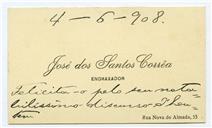 4-6-908.
José dos Santos Corrêa
ENGRAXADOR
Felicita-o pelo seu nota-
bilissimo discurso d'hon-
tem.
Rua Nova do Almada, 15